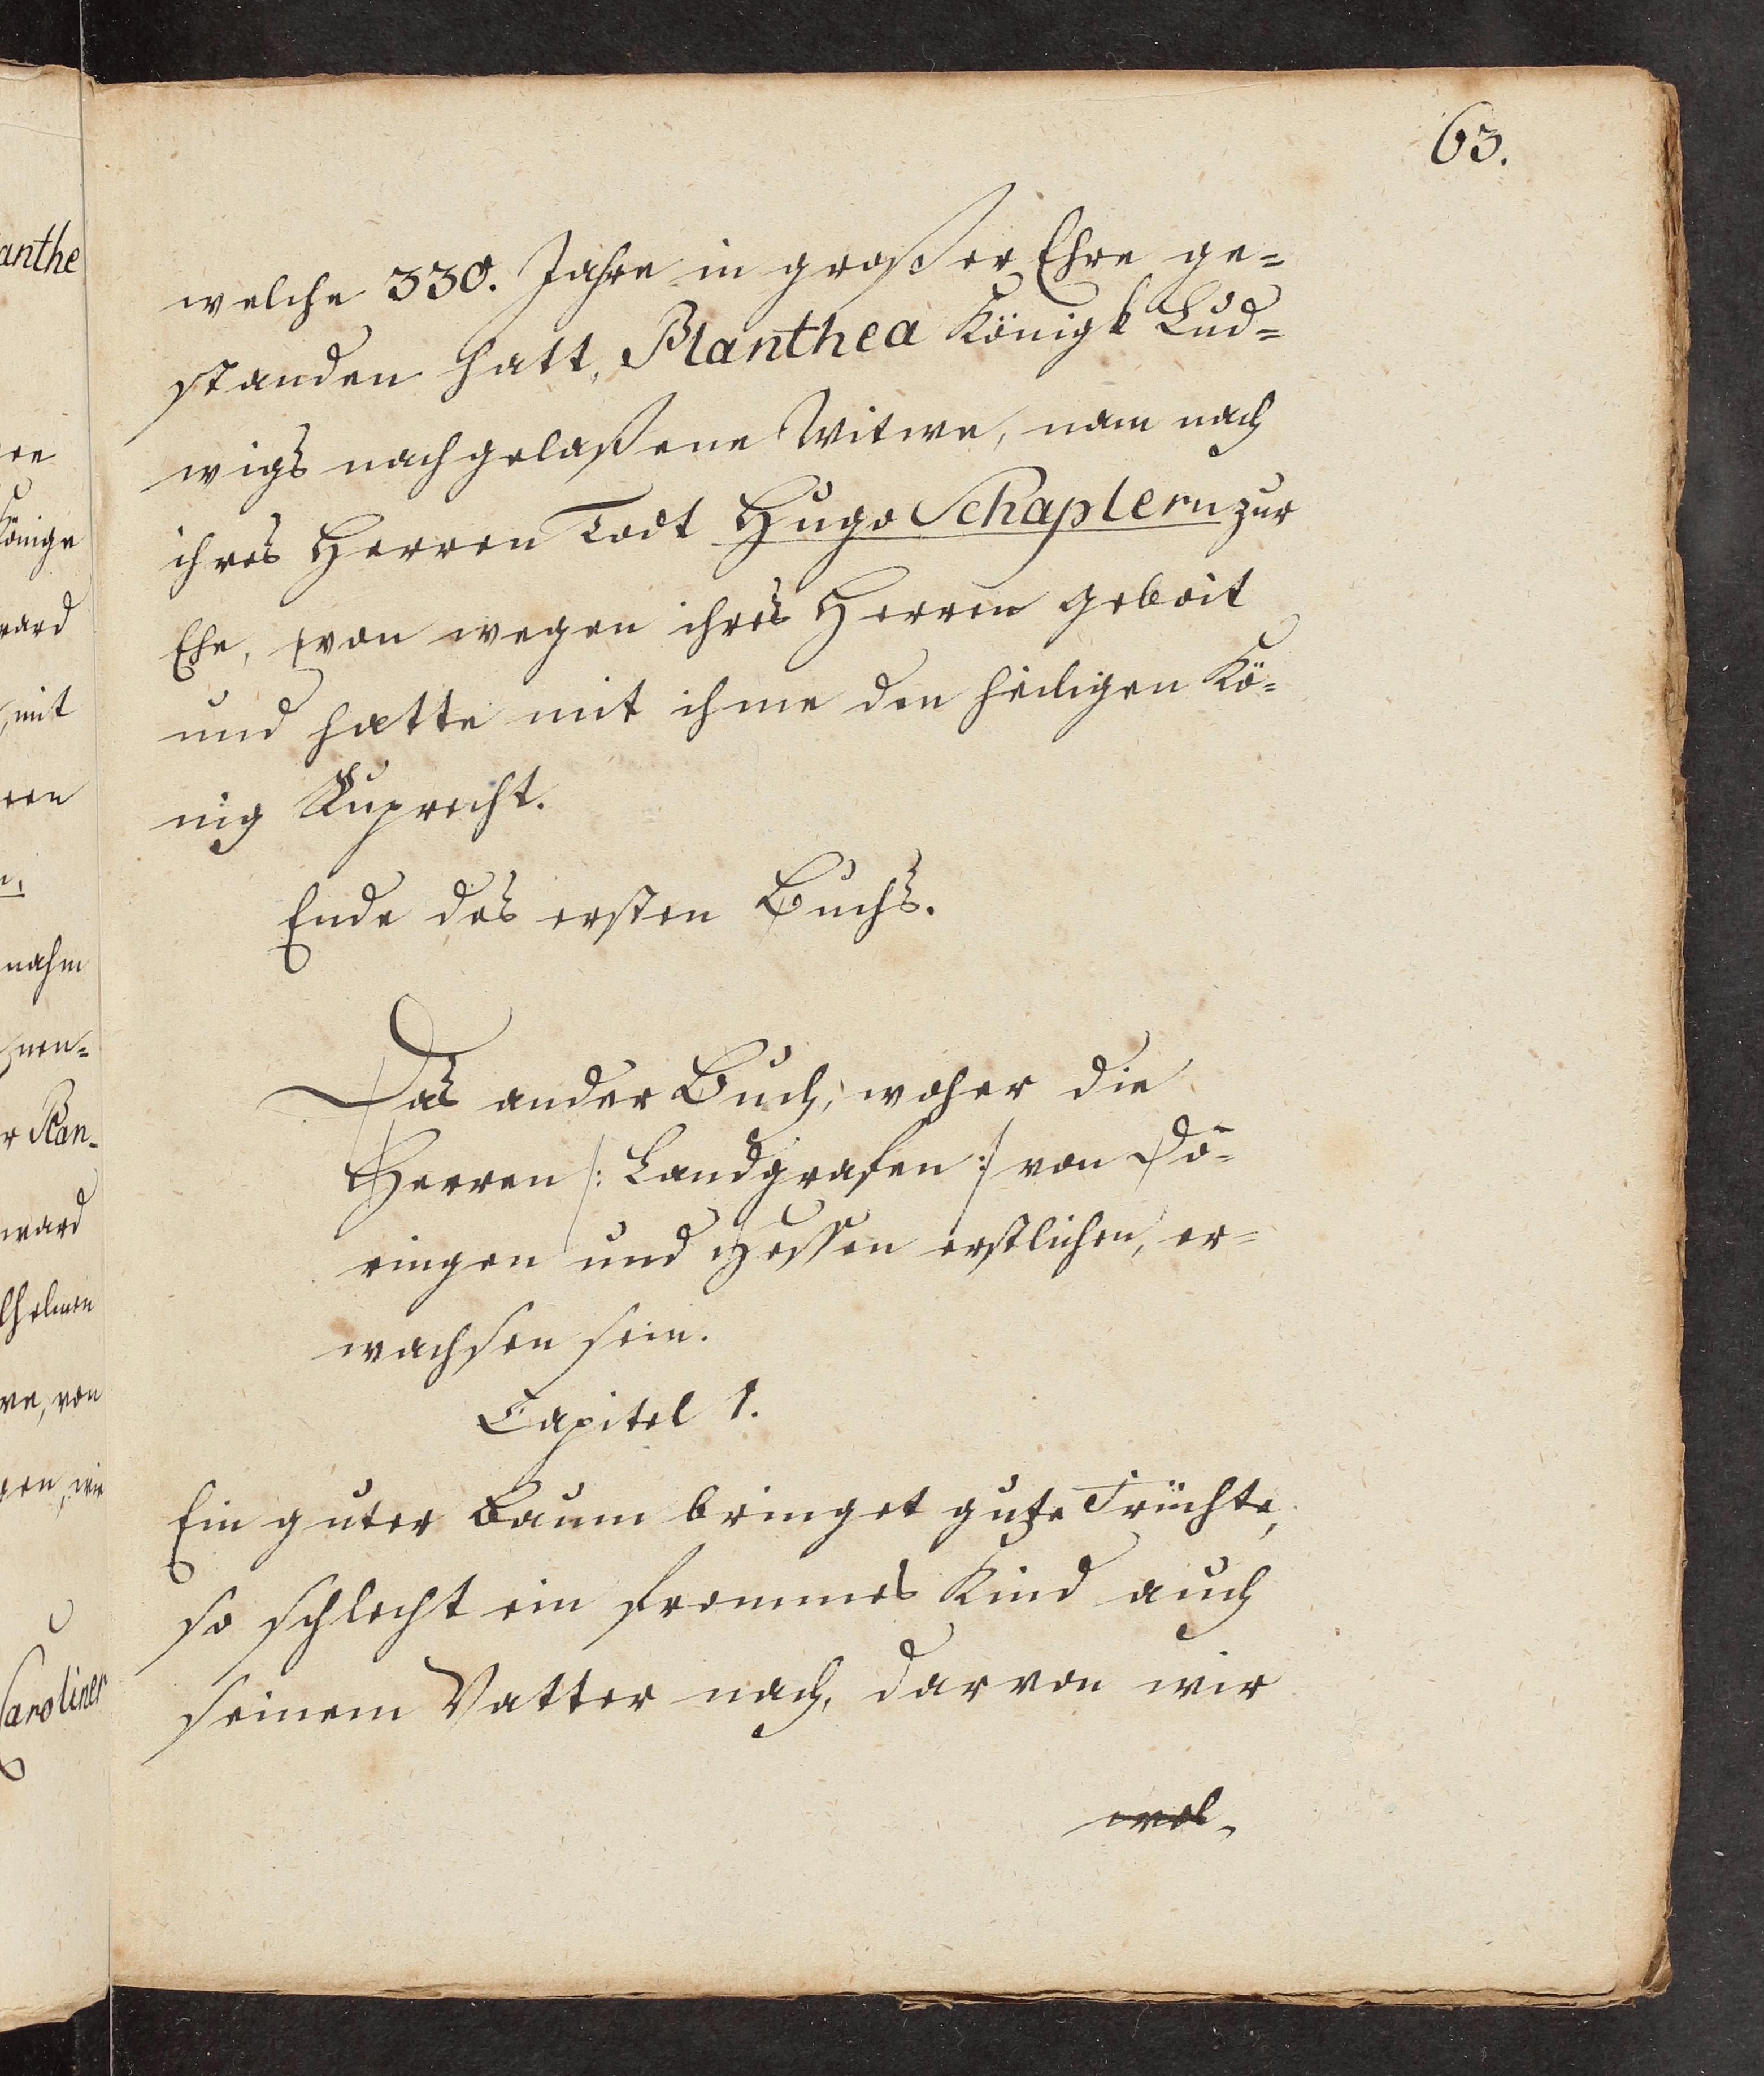 63.
welche 330. Jahre in großer Ehre ge=
standen hatt, Planthea Königk Lud=
wigs nachgelaßene Witwe, nam nach
ihres Herren Todt Hugo Schaplern zur
Ehe, von wegen ihres Herren geboit
und hatte mit ihme den heiligen Kö=
nig Ruprecht.
Ende des ersten Buchs.
Das ander Buch, woher die
Herren /: Landgrafen :/ von Dö=
ringen und Hessen erstlichen, er=
wachsen sein.
Capitel 1.
Ein guter Baum bringet gute Früchte,
so schlecht ein frommes Kind auch
seinem Vatter nach, darvon wir
wol-
anthe
König
ward
mit
nahm
ward
von
Caroliner